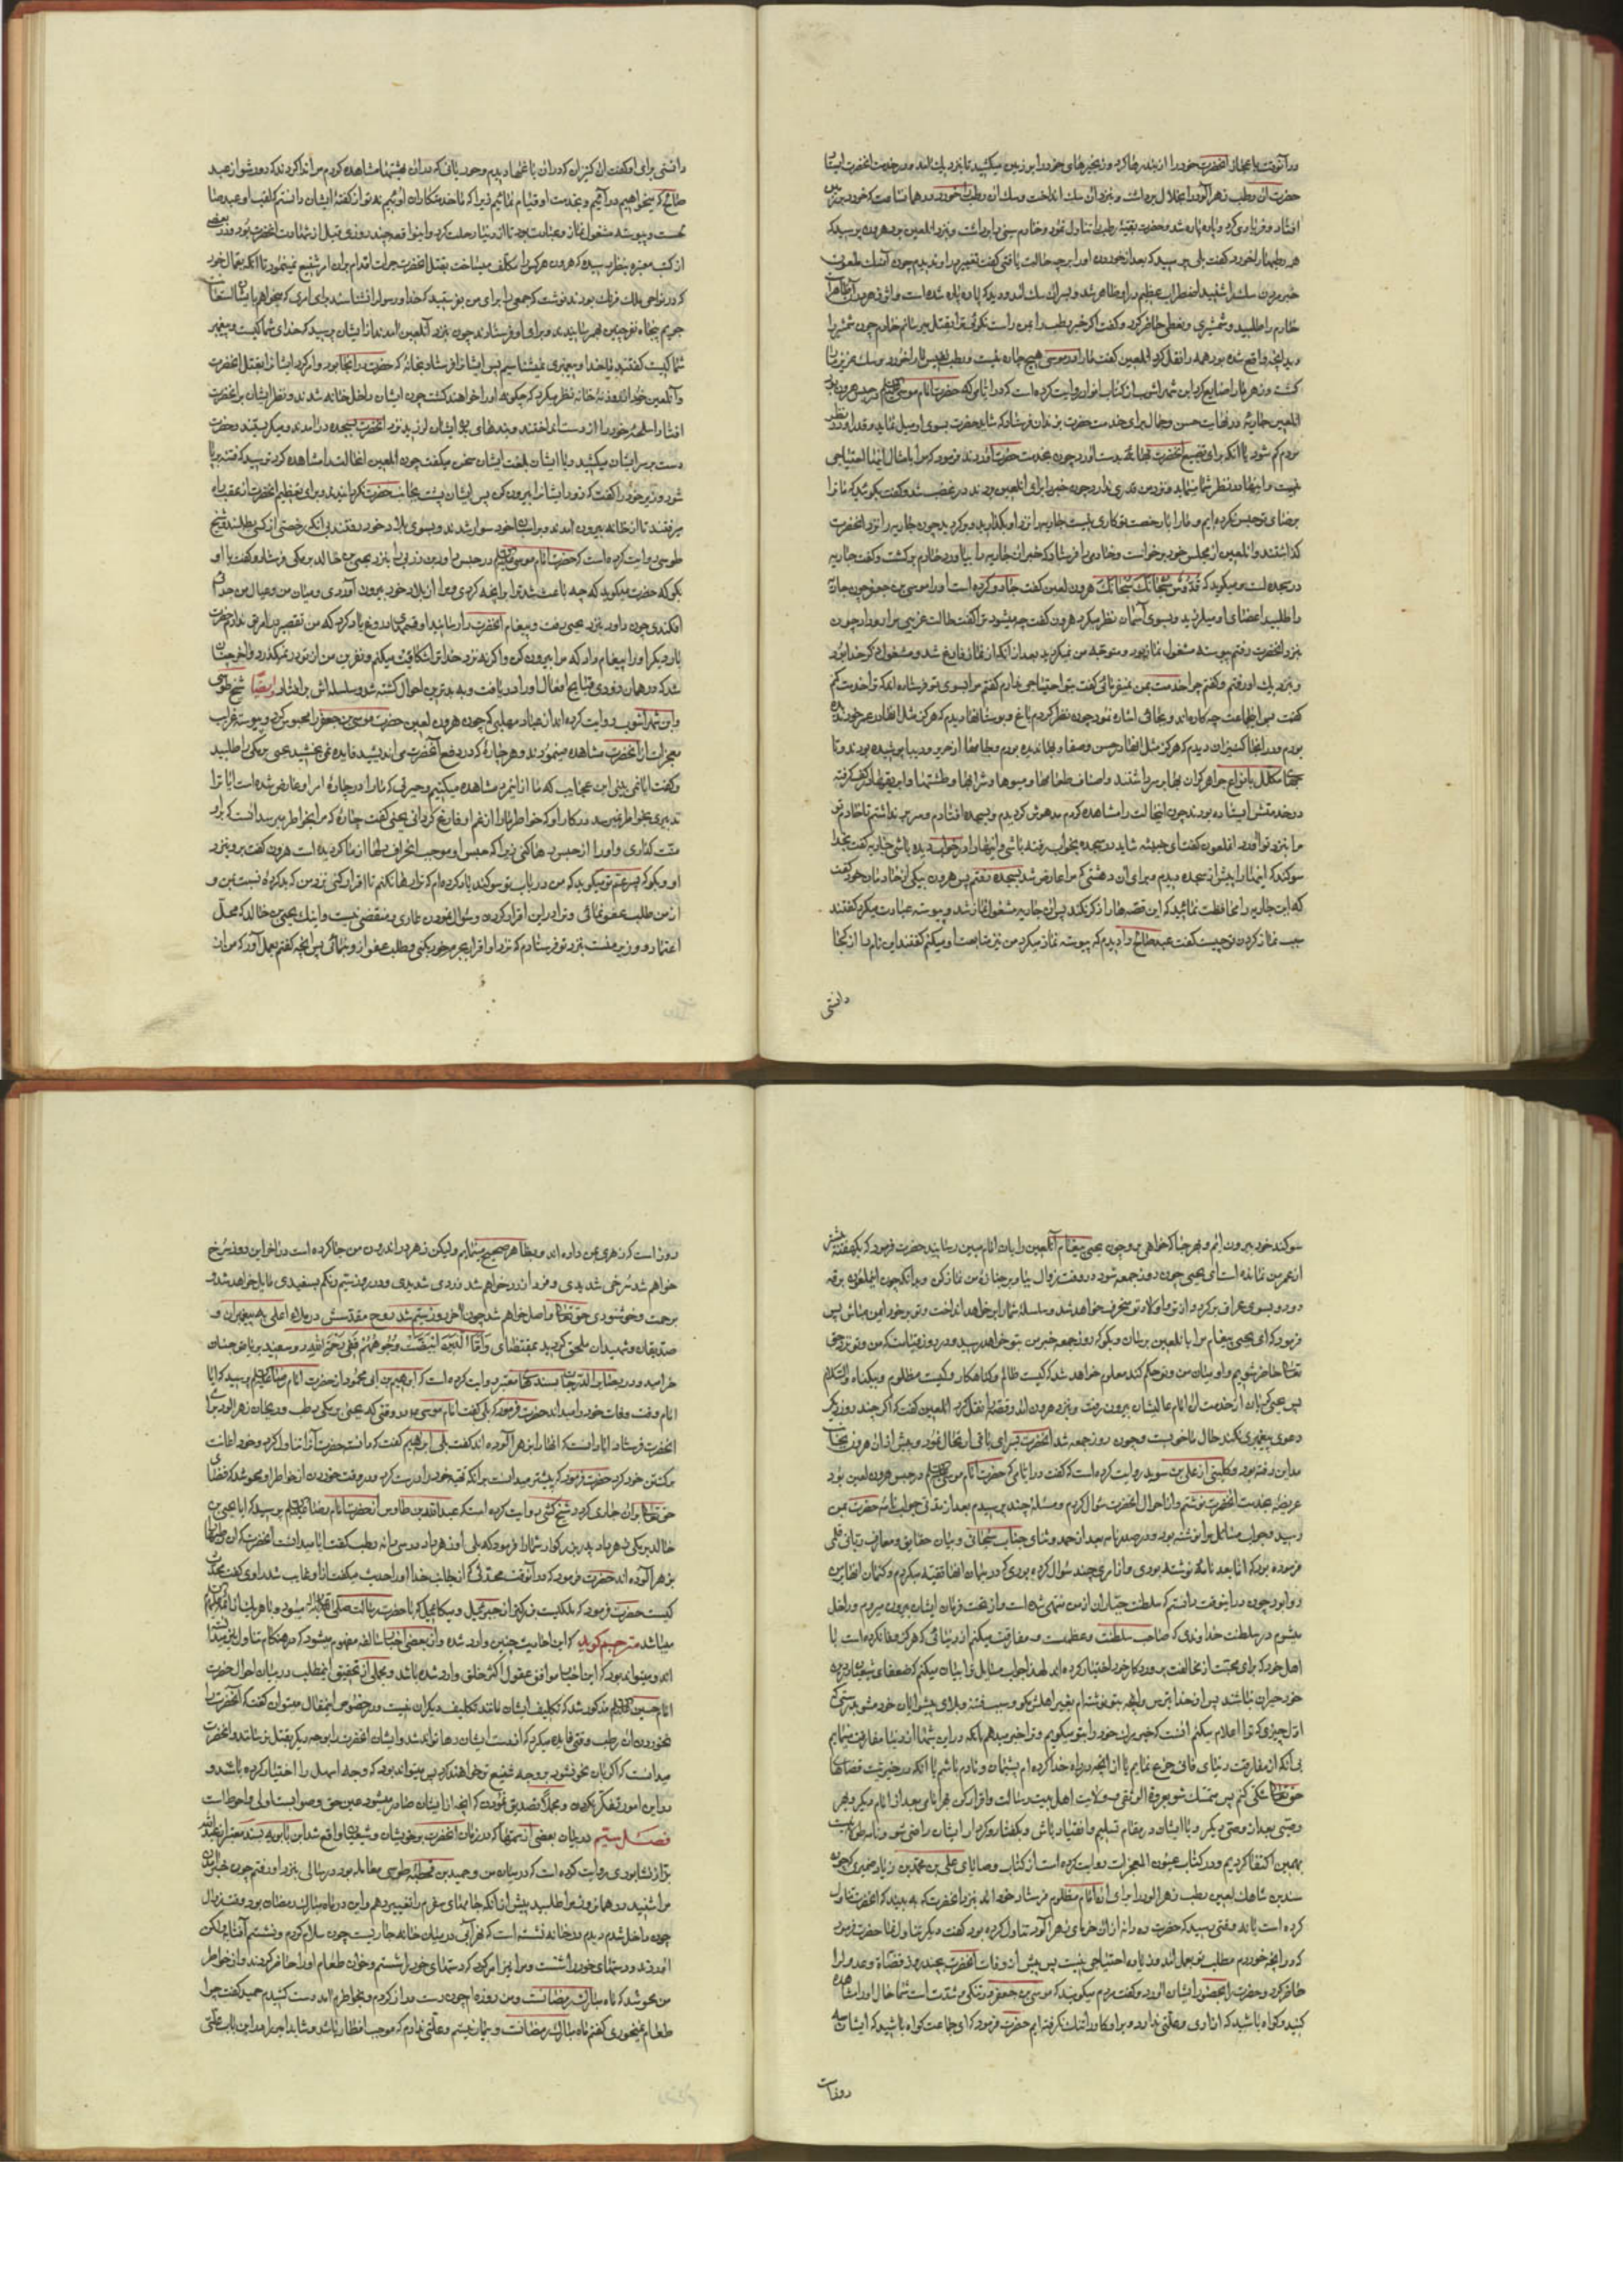 درآنوقت باعجاز آنحضرت خود را از بند رها کرد و زنجیرهای خود را بر زمین میکشید تا نزدیك آمد و در خدمت آنحضرت ایستاد
حضرت آن رطب زهرآلود را بخلال برداشت و بنزد آن سك انداخت و سك آن رطب را خورد و در همان ساعت خود را بر زمین
افتاد و فریادی کرد و پاره پاره شد و حضرت بقیه رطب را تناول نمود و خادم سینی را برداشت و بنزد آنلعین برد هرون پرسید که
همه رطبها را خورد گفت بلی پرسید که بعد از خوردن او را برچه حالت یافتی گفت تغییری در او ندیدم چون آن
خبر مردن سك را شنید اضطراب عظیم در او ظاهر شد و بر سر آن سك آمد و دید که پاره پاره شده است
خادم را طلبید و شمشیری و نطعی حاضر کرد و گفت اگر خبر رطب را بمن راست نکوئی ترا بقتل میرسانم خادم چون شمشیر را
دید آنچه واقع شده بود همه را نقل کرد آنلعین گفت ما را در موسی هیچ چاره نیست رطب نفیس ما را خورد و سك عزیز ما را
کشت و زهر ما را ضایع کرد ابن شهرآشوب از کتاب انوار روایت کرده است که در ایامی که حضرت امام موسی در حبس هرون بود
آنلعین جاریه در نهایت حسن و جمال برای خدمت حضرت بزندان فرستاد که شاید حضرت بسوی او میل نماید و قدر او در نظر
مردم کم شود یا آنکه برای تضییع آنحضرت بهانه بدست آورد چون بخدمت حضرت آوردند فرمود که مرا بامثال اینها احتیاجی
نیست و اینها در نظر شما مینماید و نزد من قدری ندارد چون خبر را برای آنلعین بردند در غضب شد و گفت بگوئید که ما ترا
برضای تو حبس نکرده ایم و ما را با رخصت تو کاری نیست جاریه را نزد او بگذارید و برگردید چون جاریه را نزد آنحضرت
گذاشتند و آنلعین از مجلس خود برخواست و خادمی را فرستاد که خبر آن جاریه را بیاورد خادم برگشت و گفت جاریه
در سجده است و میگوید که قدوس سبحانك سبحانك هرون لعین گفت جادو کرده است او را موسی بن جعفر چون جاریه
را طلبید اعضای او میلرزید و بسوی آسمان نظر میکرد هرون گفت چه میشود ترا گفت حالت غریبی مرا روداد چون
بنزد آنحضرت رفتم پیوسته مشغول نماز بود و متوجه من نمیگردید بعد از آنکه از نماز فارغ شد و مشغول ذکر خدا بود
و نزدیك او رفتم و گفتم چرا خدمت بمن نمیفرمائی گفت بتو احتیاجی ندارم گفتم مرا بسوی تو فرستاده اند که ترا خدمت کنم
گفت پس این جماعت چه کاره اند و بجانبی اشاره نمود چون نظر کردم باغ و بوستانها دیدم که هرگز مثل آنها در عمر خود ندیده
بودم و در آنجا کنیزان دیدم که هرگز مثل آنها در حسن و صفا و بها ندیده بودم و جامها از حریر و دیبا پوشیده بودند و تا
جهای مکلل بانواع جواهر گران بها بر سر داشتند و اصناف طعامها و میوها و شرابها و طشتها و ابریقها در کف گرفته
در خدمتش ایستاده بودند چون آنحالت را مشاهده کردم مدهوش گردیدم و بسجده افتادم و سر بر نداشتم تا خادم تو
مرا بنزد تو آورد آنلعون گفت ای خبیثه شاید در سجده بخواب رفته باشی و اینها را در خواب دیده باشی جاریه گفت بخدا
سوگند که اینها را پیش از سجده دیدم و برای آن دهشتی که مرا عارض شد بسجده رفتم پس هرون بیکی از خادمان خود گفت
که این جاریه را محافظت نمائید که این قصه ها را ذکر نکند پس آن جاریه مشغول نماز شد و پیوسته عبادت میکرد گفتند
سبب نماز کردن تو چیست گفت عبد صالح را دیدم که پیوسته نماز میکرد من نیز متابعت او میکنم گفتند این نام را از کجا
دانستی
دانستی برای او گفت آن کنیزان که در آن باغها دیدم و حوریانی که در آن بهشتها مشاهده کردم مرا ندا کردند که دور شو از عبد
صالح که میخواهیم درآئیم و بخدمت او قیام نمائیم زیرا که ما خدمتکاران اوئیم نه تو از گفته ایشان دانستم که لقب او عبد صا
لحست و پیوسته مشغول نماز و عبادت بود تا از دنیا رحلت کرد و این واقعه چند روزی قبل از شهادت آنحضرت بود و در بعضی
از کتب معتبره بنظر رسیده که هرون هرکس را مکلف میساخت بقتل آنحضرت جرأت اقدام بر آن امر شنیع نمینمود تا آنکه بعمال خود
که در نواحی بلاد فرنك بودند نوشت که جمعی را برای من بفرستید که خدا و رسول را نشناسند برای امری که میخواهم
جویم پنجاه نفر چنین بهم رسانیدند و برای او فرستادند چون بنزد آنلعین آمدند از ایشان پرسید که خدای شما کیست و پیغمبر
شما کیست گفتند ما خدا و پیغمبری نمیشناسیم پس ایشانرا فرستاد بخانه که حضرت در آنجا بود و امر کرد ایشانرا بقتل آنحضرت
و آنلعین خود از روزنه خانه نظر میکرد که چگونه او را خواهند کشت چون ایشان داخل خانه شدند و نظر ایشان بر آنحضرت
افتاد اسلحه خود را از دست انداختند و بندهای بدن ایشان لرزید نزد آنحضرت بسجده درآمدند و میگریستند و حضرت
دست بر سر ایشان میکشید و با ایشان بلغت ایشان سخن میگفت چون آنلعین آنحالت را مشاهده کرد ترسید که فتنه برپا
شود وزیر خود را گفت که زود ایشانرا بیرون کن پس ایشان پشت بجانب حضرت نکردانیدند و برای تعظیم آنحضرت از عقب راه
میرفتند تا از خانه بیرون آمدند و بر اسبان خود سوار شدند و بسوی بلاد خود رفتند بی آنکه رخصتی از کسی بطلبند شیخ
طوسی روایت کرده است که حضرت امام موسی در حبس داود بن زربی را بنزد یحیی بن خالد برمکی فرستاد و گفت با او
بکو که حضرت میگوید که چه باعث شد ترا برآنچه کردی مرا از بلاد خود بیرون آوردی و میان من و عیال من جدائی
افکندی چون داود بنزد یحیی رفت و پیغام آنحضرت را رسانید او قسمهای دروغ یاد کرد که من تقصیر در این امر ندارم حضرت
بار دیگر او را پیغام داد که مرا بیرون کن و اگر نه نزد خدا ترا شکایت میکنم و نفرین من از تو در نمیگذرد و آخر چنان
شد که در همان زودی قبایح افعال او او را دریافت و به بدترین احوال کشته شد و سلسله اش برافتاد وایضا شیخ طوسی
و ابن شهرآشوب روایت کرده اند از عباد مهلبی که چون هرون لعین حضرت موسی بن جعفر را محبوس کرد و پیوسته غرایب
معجزات از آنحضرت مشاهده مینمودند و هر چاره که در دفع آنحضرت می اندیشید فایده نمی بخشید یحیی برمکی را طلبید
و گفت ایا نمی بینی این عجایب که ما از این مرد مشاهده میکنیم و حیرتی که ما را در چاره امر او عارض شده است آیا ترا
تدبیری بخاطر نمیرسد در کار او که خواطر ما را از غم او فارغ گردانی یحیی گفت چاره که مرا بخواطر میرسد آنست که بر او
منت گذاری و او را از حبس رها کنی زیرا که حبس او موجب انحراف دلها از ما گردیده است هرون گفت برو بنزد
او و بکو که پسر عم تو میگوید که من در باب تو سوگند یاد کرده ام که ترا رها نکنم تا اقرار کنی نزد من که بد کرده نسبت بمن و
از من طلب عفو نمائی و ترا در این اقرار کردن و سؤال نمودن عاری و منقصتی نیست و اینك یحیی بن خالد که محل
اعتماد و وزیر منست بنزد تو فرستادم که نزد او اقرار بجرم خود بکنی و طلب عفو از او نمائی پس آنچه گفتم بعمل آور که من از
سوگند خود بیرون آیم و بهر جا که خواهی برو چون یحیی پیغام آنلعین را بآن امام مبین رسانید حضرت فرمود که یك هفته بیش
از عمر من نمانده است ای یحیی چون روز جمعه شود در وقت زوال بیا و بر جنازه من نماز کن و بدانکه چون آنملعون برقه
رود و بسوی عراق برگردد از تو و اولاد تو منحرف خواهد شد و سلسله شما را برخواهد انداخت و تو بر خود ایمن مباش پس
فرمود که ای یحیی پیغام مرا بآنلعین برسان و بگو که روز جمعه خبر من بتو خواهد رسید و در روز قیامت که من و تو نزد حق
تعالی حاضر شویم و او میان من و تو حکم کند معلوم خواهد شد که کیست ظالم و گناهکار و کیست مظلوم و بیگناه والسلام
پس یحیی گریان از خدمت آن امام عالیشان بیرون رفت و بنزد هرون آمد و قصه را نقل کرد آنلعین گفت که اگر چند روز دیگر
دعوی پیغمبری نکند حال ما خوبست و چون روز جمعه شد آنحضرت بسرای باقی ارتحال نمود و پیش از آن هرون بجانب
مداین رفته بود و کلینی از علی بن سوید روایت کرده است که گفت در ایامی که حضرت امام موسی در حبس هرون لعین بود
عریضه بخدمت آنحضرت نوشتم و از احوال آنحضرت سؤال کردم و مسئله چند پرسیدم بعد از مدتی جواب نامه حضرت بمن
رسید و جواب مسائل مرا نوشته بود و در صدر نامه بعد از حمد و ثنای جناب سبحانی و بیان حقایق و معارف ربانی قلمی
فرموده بود که اما بعد نامه نوشته بودی و از امری چند سؤال کرده بودی که در بیان آنها تقیه میکردم و کتمان آنها بر من
روا بود چون در اینوقت دانستم که سلطنت جباران از من منتهی شده است و از تحت فرمان ایشان بیرون میروم و داخل
میشوم در سلطنت خداوندی که صاحب سلطنت و عظمت است و مفارقت میکنم از دنیائی که هرگز وفا نکرده است با
اهل خود که برای محبت او مخالفت پروردگار خود اختیار کرده اند لهذا جواب مسایل ترا بیان میکنم که ضعفای شیعیان در دین
خود حیران نباشند پس از خدا بترس و آنچه بتو نوشته ام بغیر اهلش مگو و سبب فتنه و بلای پیشوایان خود مشو بدرستی که
اول چیزی که ترا اعلام میکنم آنست که خبر مرك خود را بتو میگویم و ترا خبر میدهم بآنکه در این شبها از دنیا مفارقت مینمایم
بی آنکه از مفارقت دنیای فانی جزع نمایم یا از آنچه در راه خدا کرده ام پشیمان و نادم باشم یا آنکه در خیریت قضاهای
حق تعالی شکی کنم پس متمسك شو بعروة الوثقی ولایت اهل بیت رسالت و اقرار کن بهر امامی بعد از امام دیگر و بهر
وصیی بعد از وصی دیگر و با ایشان در مقام تسلیم و انقیاد باش و بگفتار و کردار ایشان راضی شو و نامه طولانیست
بهمین اکتفا کردیم و در کتاب عیون المعجزات روایت کرده است از کتاب وصایای علی بن محمد بن زیاد صیمری که چون
سندی بن شاهك لعین رطب زهرآلود را برای آن امام مظلوم فرستاد خود آمد بنزد آنحضرت که به بیند که آنحضرت تناول
کرده است یا نه وقتی رسید که حضرت ده دانه از آن خرمای زهرآلود تناول کرده بود گفت دیگر تناول نما حضرت فرمود
که در آنچه خوردم مطلب تو بعمل آمد و زیاده احتیاجی نیست پس پیش از وفات آنحضرت بچند روز قضاة و عدول را
حاضر کرد و حضرت را بحضور ایشان آورد و گفت مردم میگویند که موسی بن جعفر در تنگی و شدت است شما حال او را مشاهده
کنید و گواه باشید که آزاری و علتی ندارد و بر او کار را تنك نگرفته ایم حضرت فرمود که ای جماعت گواه باشید که ایشان سه
روز است
روز است که زهری بمن داده اند و بظاهر صحیح مینمایم ولیکن زهر در اندرون من جا کرده است در آخر این روز سرخ
خواهم شد سرخی شدیدی و فردا زرد خواهم شد زردی شدیدی و در روز سیم رنگم بسفیدی مایل خواهد شد و
برحمت و خوشنودی حق تعالی واصل خواهم شد چون آخر روز سیم شد روح مقدسش در ملاء اعلی به پیغمبران و
صدیقان و شهیدان ملحق گردید بمقتضای وَاَمَّا الَّذِینَ ابْیَضَّتْ وُجُوهُهُمْ فَفی رَحْمَةِ اللهِ رو سفید بریاض جنان
خرامید و در بصایر الدرجات بسند معتبر روایت کرده است که ابراهیم بن ابی محمود از حضرت امام رضا پرسید که آیا
امام وقت وفات خود را میداند حضرت فرمود که بلی گفت امام موسی در وقتی که یحیی برمکی رطب و ریحان زهرآلود برای
آنحضرت فرستاد آیا دانست که آنها را بزهر آلوده اند گفت بلی ابراهیم گفت که دانسته حضرت آنرا تناول کرد و خود اعانت
بر کشتن خود کرد حضرت فرمود که پیشتر میدانست برای آنکه تهیه خود را درست کرد و در وقت خوردن از خواطر او محو شد که قضای
حق تعالی بر او جاری گردد و شیخ کشی روایت کرده است که عبدالله بن طاوس از حضرت امام رضا پرسید که آیا یحیی بن
خالد برمکی زهر داد پدر بزرگوار شما را فرمود که بلی او زهر داد در سی دانه رطب گفت آیا میدانست آنحضرت که آن رطبها
بزهر آلوده اند حضرت فرمود که در آنوقت محدثی که از جانب خدا او را حدیث میگفت از او غایب شد راوی گفت محدث
کیست حضرت فرمود که ملکیست بزرگتر از جبرئیل و میکائیل که با حضرت رسالت صلی الله علیه وآله میبود و با هر یك از ائمه
میباشد مترجم گوید که این احادیث چنین وارد شده و از بعضی اخبار سالفه مفهوم میشود که در هنگام تناول نیز میدا
نند و میتواند بود که این اخبار موافق عقول اکثر خلق وارد شده باشد و مجملی از تحقیق اینمطلب در بیان احوال حضرت
امام حسین مذکور شد که تکلیف ایشان مانند تکلیف دیگران نیست و در خصوص اینمقال میتوان گفت که آنحضرت را
نخوردن آن رطب وقتی فایده میکرد که از دست ایشان رها تواند شد و ایشان آنحضرت را بوجه دیگر بقتل نرسانند و آنحضرت
میدانست که اگر بآن نحو نشود بوجه شنیع تر خواهند کرد پس میتواند بود که وجه اسهل را اختیار کرده باشد و
در این امور تفکر نکردن و مجملا تصدیق نمودن که آنچه از ایشان صادر میشود عین حق و صوابست اولی و احوطست
فصل سیم در بیان بعضی از ستمها که در زمان آنحضرت بر خویشان و شیعیان واقع شد ابن بابویه بسند معتبر از عبدالله
بزاز نشابوری روایت کرده است که در میان من و حمید بن قحطبه طوسی معامله بود در سالی بنزد او رفتم چون خبر آمدن
مرا شنید در همان روز مرا طلبید پیش از آنکه جامهای سفرم را تغییر دهم و این در ماه مبارك رمضان بود وقت زوال
چون داخل شدم دیدم در خانه نشسته است که نهر آبی در میان خانه جاریست چون سلام کردم و نشستم آفتابه لگن
آوردند و دستهای خود را شست و مرا نیز امر کرد که دستهای خود را شستم و خوان طعام او را حاضر کردند و از خواطر
من محو شد که ماه مبارك رمضانست و من روزه ام چون دست دراز کردم و بخواطرم آمد دست کشیدم حمید گفت چرا
طعام نمیخوری گفتم ماه مبارك رمضانست و بیمار نیستم و علتی ندارم که موجب افطار باشد و شاید امیر را در این باب علتی